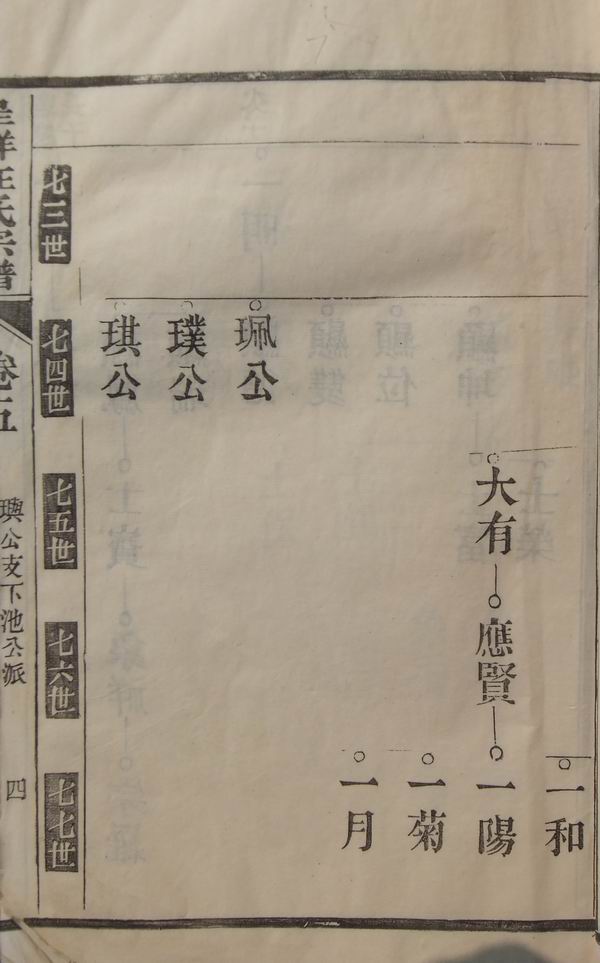 一和
大有
應賢
一陽
一菊
一月
珮公
璞公
琪公
七三世
七四世
七五世
七六世
七七世
汪氏宗譜
卷五
璵公支下池公派
四